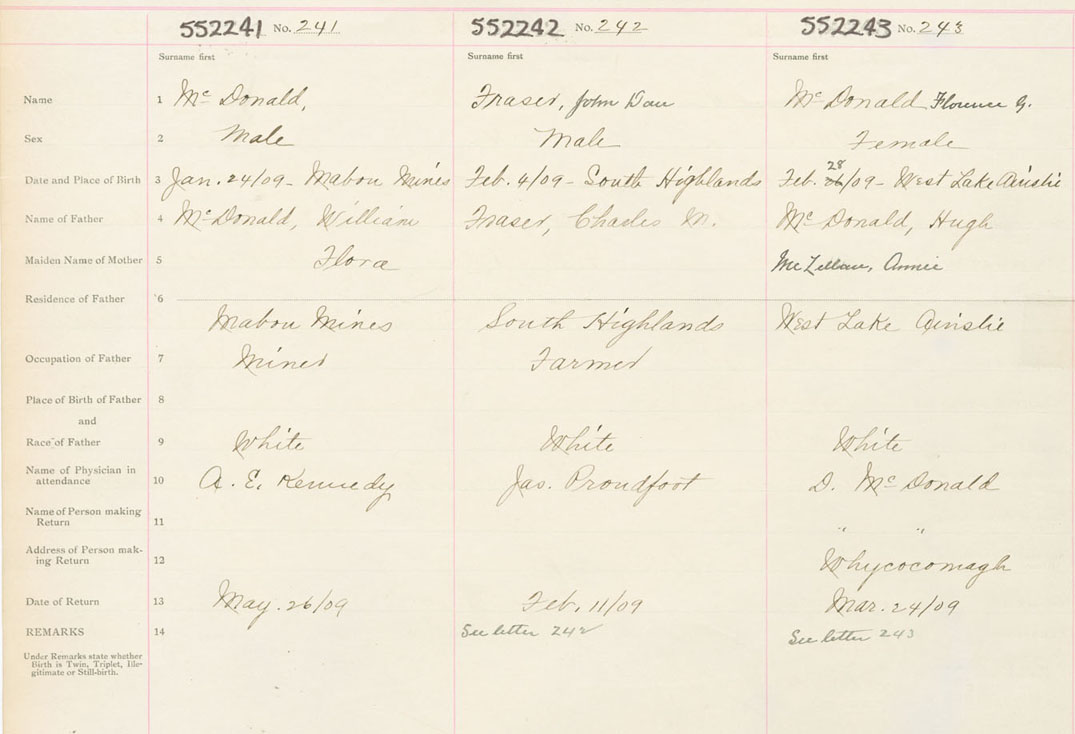 552241 No. 241 552242 No. 242 552243 No. 243
Surname first Surname first Surname first
Name 1 Mc Donald, Fraser, John Dan Mc Donald Florence G.
Sex 2 Male Male Female
28
Date and Place of Birth 3 Jan. 24/09 - Mabou Mines Feb. 4/09 - South Highlands Feb. 26/09 - West Lake Ainslie
Name of Father 4 McDonald, William Fraser, Charles M. McDonald, Hugh
Maiden Name of Mother 5 Flora Annie
Residence of Father 6
Mabou Mines South Highlands West Lake Ainslie
Occupation of Father 7 Miner Farmer
Place of Birth of Father 8
and
Race of Father 9 White White White
Name of Physician in
attendance 10 A. E. Kennedy Jas. Proudfoot D. McDonald
Name of Person making
Return 11 " "
Address of Person mak-
ing Return 12 Whycocomagh
Date of Return 13 May. 26/09 Feb. 11/09 Mar. 24/09
REMARKS 14 See letter 242 See letter 243
Under Remarks state whether
Birth is Twin, Triplet, Ille-
gitimate or Still-birth.